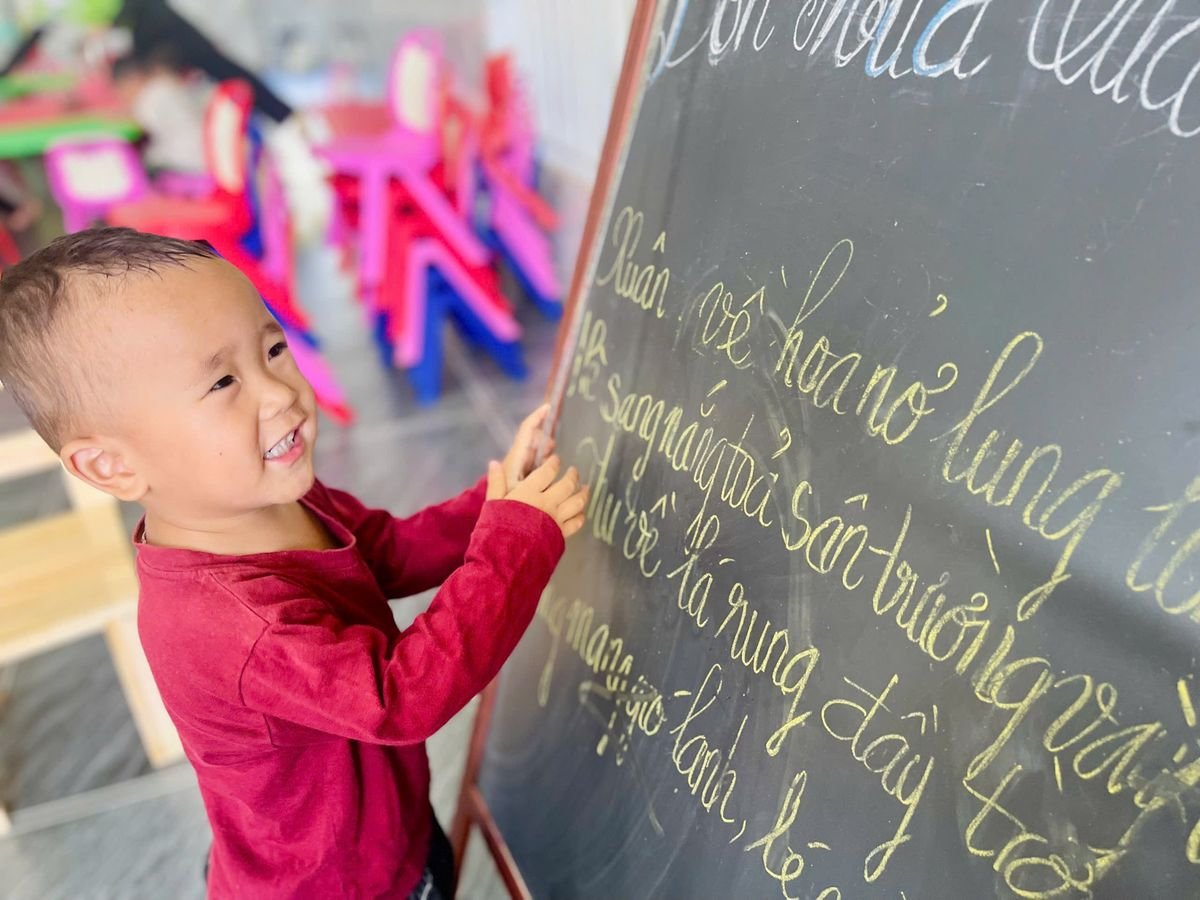 Bốn mùa
Xuân về hoa nở lung
Hè sang nắng toả sân trường
Thu về lá rụng đầy
mang gió lạnh, bé